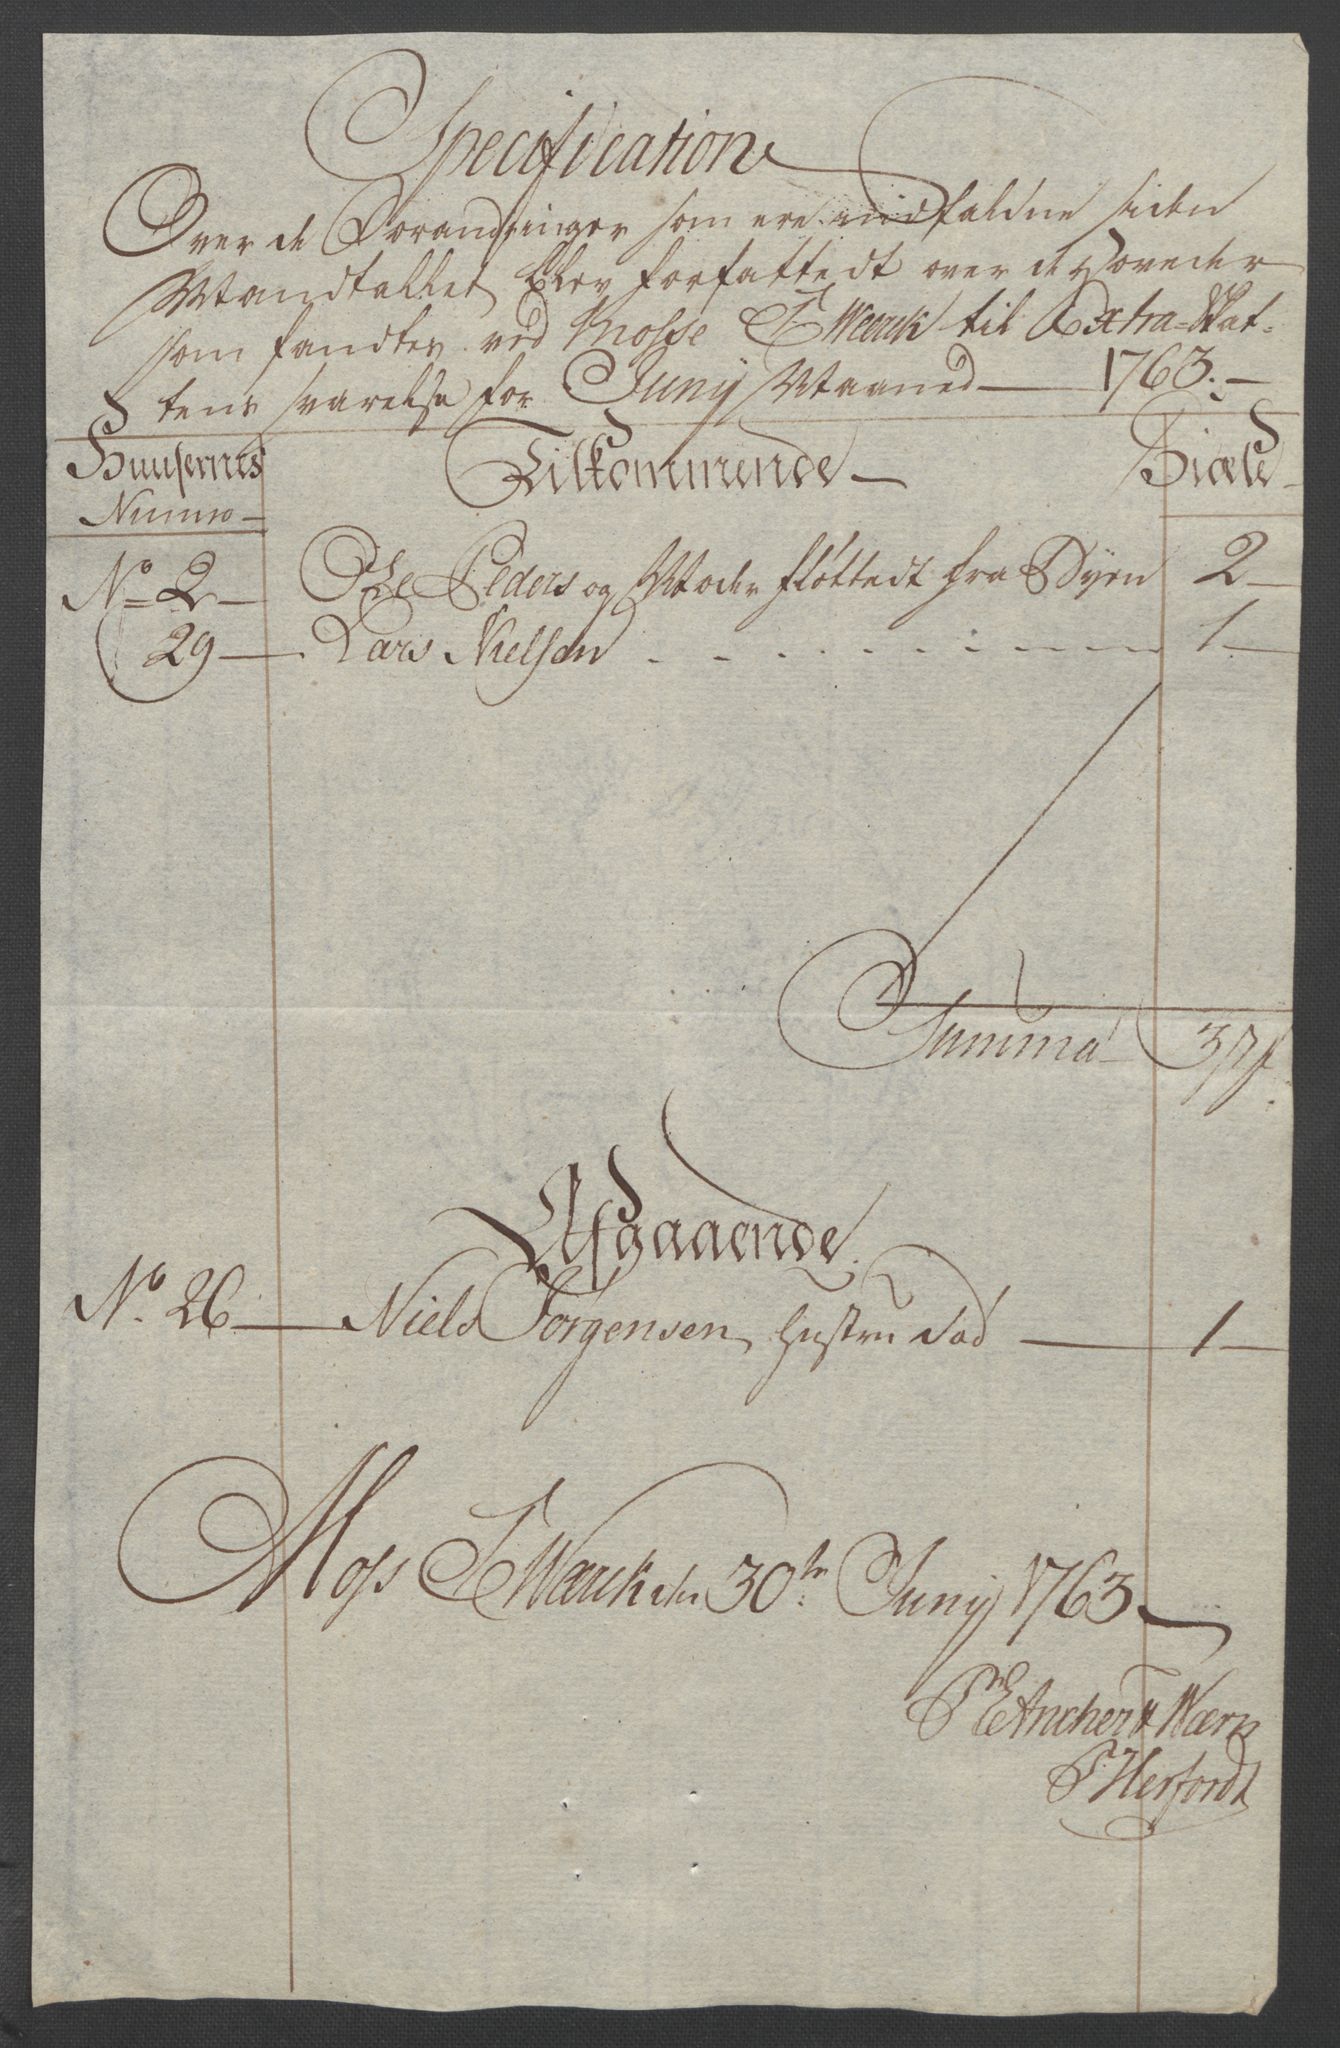 Specification
Over de Forandringer som ere indfaldne siden
Mandtallet blev forfattedt over de Hoveder
som fandtes ved Mosse J: Werck til Extra=Skat=
tens svarelse for Juny Maaned — 1763. —
Huusernes Tilkommende — Siæle
Numro —
No 2 — Ole Peders og Moder flöttedt fra Byen 2 —
29 — Lars Nielsen . . . . . . . . 1 —
Summa 3
Afgaaende
No. 26 — Niels Jörgensen hustru död — 1 —
Moss J Wærck den 30te Juny 1763
Pr Ancher & Wærn
P Herfordt